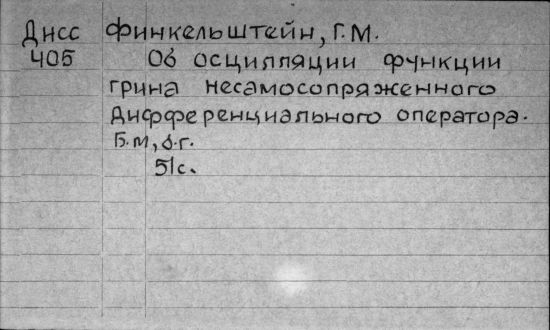 Днсс Финкельштейн, Г.М.
405 Об осцилляции функции
грина несамосопряженного
дифференциального оператора.
Б.м, б.г.
51с.